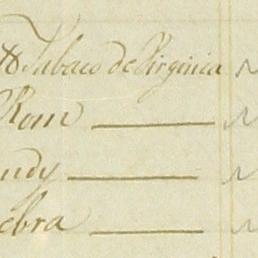 Tabaco de Virginia
Rom
ndy
ebra